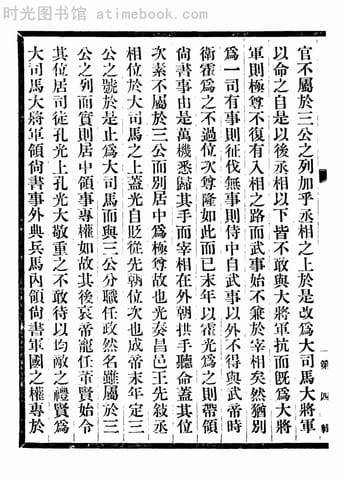 时光图书馆 - atimebook.com
官不屬於三公之列加乎丞相之上於是改爲大司馬大將軍
以命之自是以後丞相以下皆不敢與大將軍抗而既爲大將
軍則極尊不復有入相之路而武事始不兼於宰相矣然猶別
爲一司有事則征伐無事則侍中自武事以外不得與武帝時
衛霍爲之不過位次尊隆如此而已末年以霍光爲之則帶領
尙書事由是萬機悉歸其手而宰相在外朝拱手聽命蓋其位
次素不屬於三公而別居中爲極尊故也光奏昌邑王先敘丞
相位於大司馬之上蓋光自貶從先朝位次也成帝末年定三
公之號於是止爲大司馬而與三公分職任政然名雖屬於三
公之列而實則居中領事專權如故其後哀帝寵任董賢始令
其位居司徒孔光上孔光大敬重之不敢待以均敵之禮賢爲
大司馬大將軍領尙書事外典兵馬內領尙書軍國之權專於
第四輯